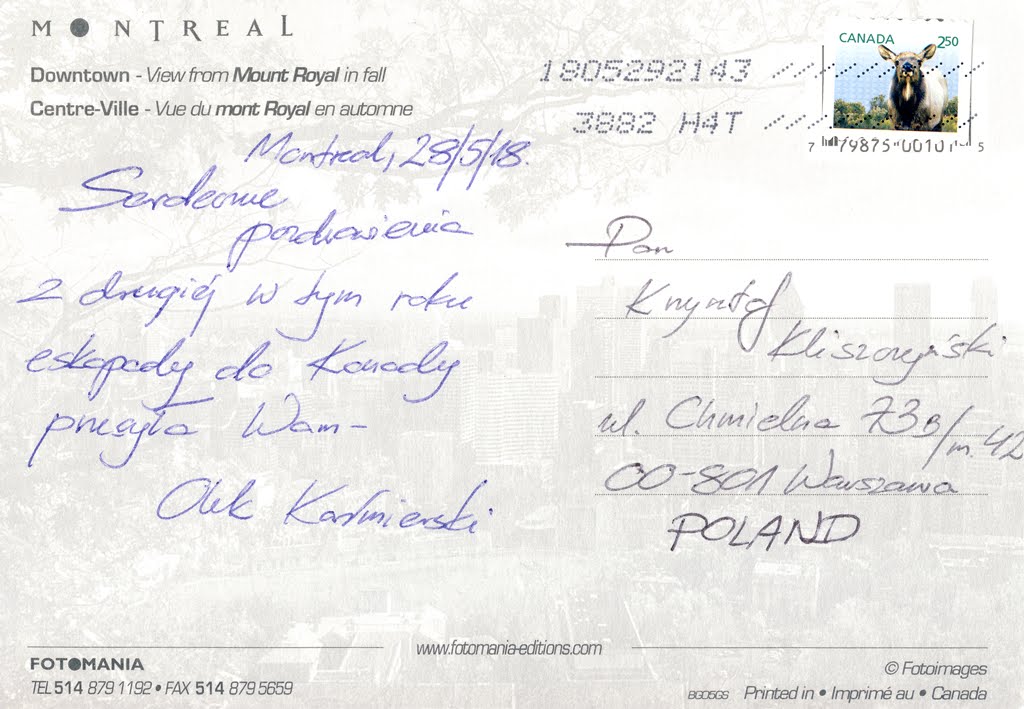 MONTREAL
Downtown - View from Mount Royal in fall
Centre-Ville - Vue du mont Royal en automne
1805292143
3882 H4T
CANADA 250
7 79875 00101 5
Montreal, 28/5/18.
Serdeczne
pozdrowienia
z drugiej w tym roku
eskapady do Kanady
przesyła Wam-
Olek Kaźmierski
Pan
Krzysztof
Kliszczyński
ul. Chmielna 73B/m. 42
00-801 Warszawa
POLAND
www.fotomania-editions.com
FOTOMANIA
TEL 514 879 1192 • FAX 514 879 5659
© Fotoimages
BG05GS Printed in • Imprimé au • Canada